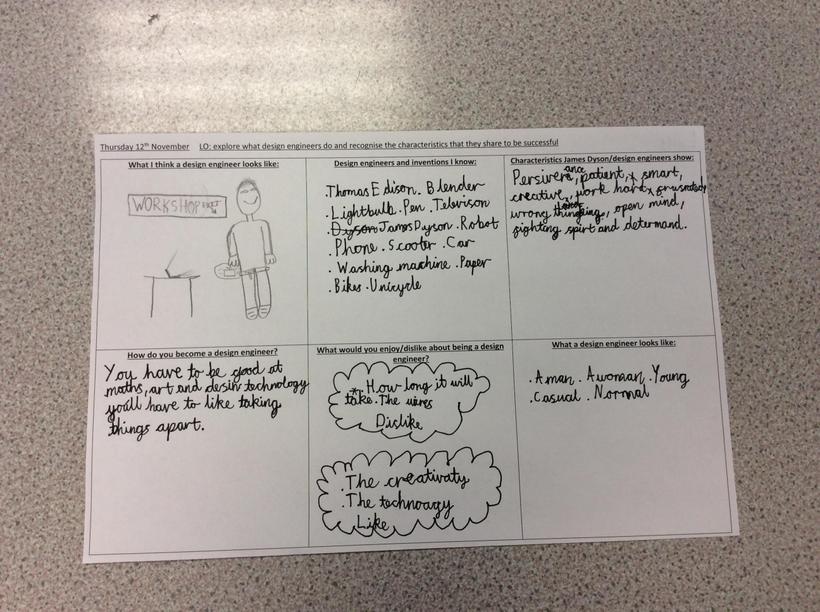 Thursday 12th November LO: explore what design engineers do and recognise the characteristics that they share to be successful
What I think a design engineer looks like:
WORKSHOP
Design engineers and inventions I know:
.Thomas Edison. Blender
.Lightbulb .Pen .Televison
.Dyson James Dyson .Robot
.Phone .Scooter .Car
. Washing machine .Paper
.Bikes .Unicycle
Characteristics James Dyson/design engineers show:
Persiverance, patient, smart,
creative, work hard,
wrong thinging, open mind,
fighting spirt and determand.
How do you become a design engineer?
You have to be good at
maths, art and desin technology
youll have to like taking
things apart.
What would you enjoy/dislike about being a design
engineer?
.How long it will
take .The wires
Dislike
.The creativaty
.The technoagy
Like
What a design engineer looks like:
.A man . A woman .Young
.Casual . Normal